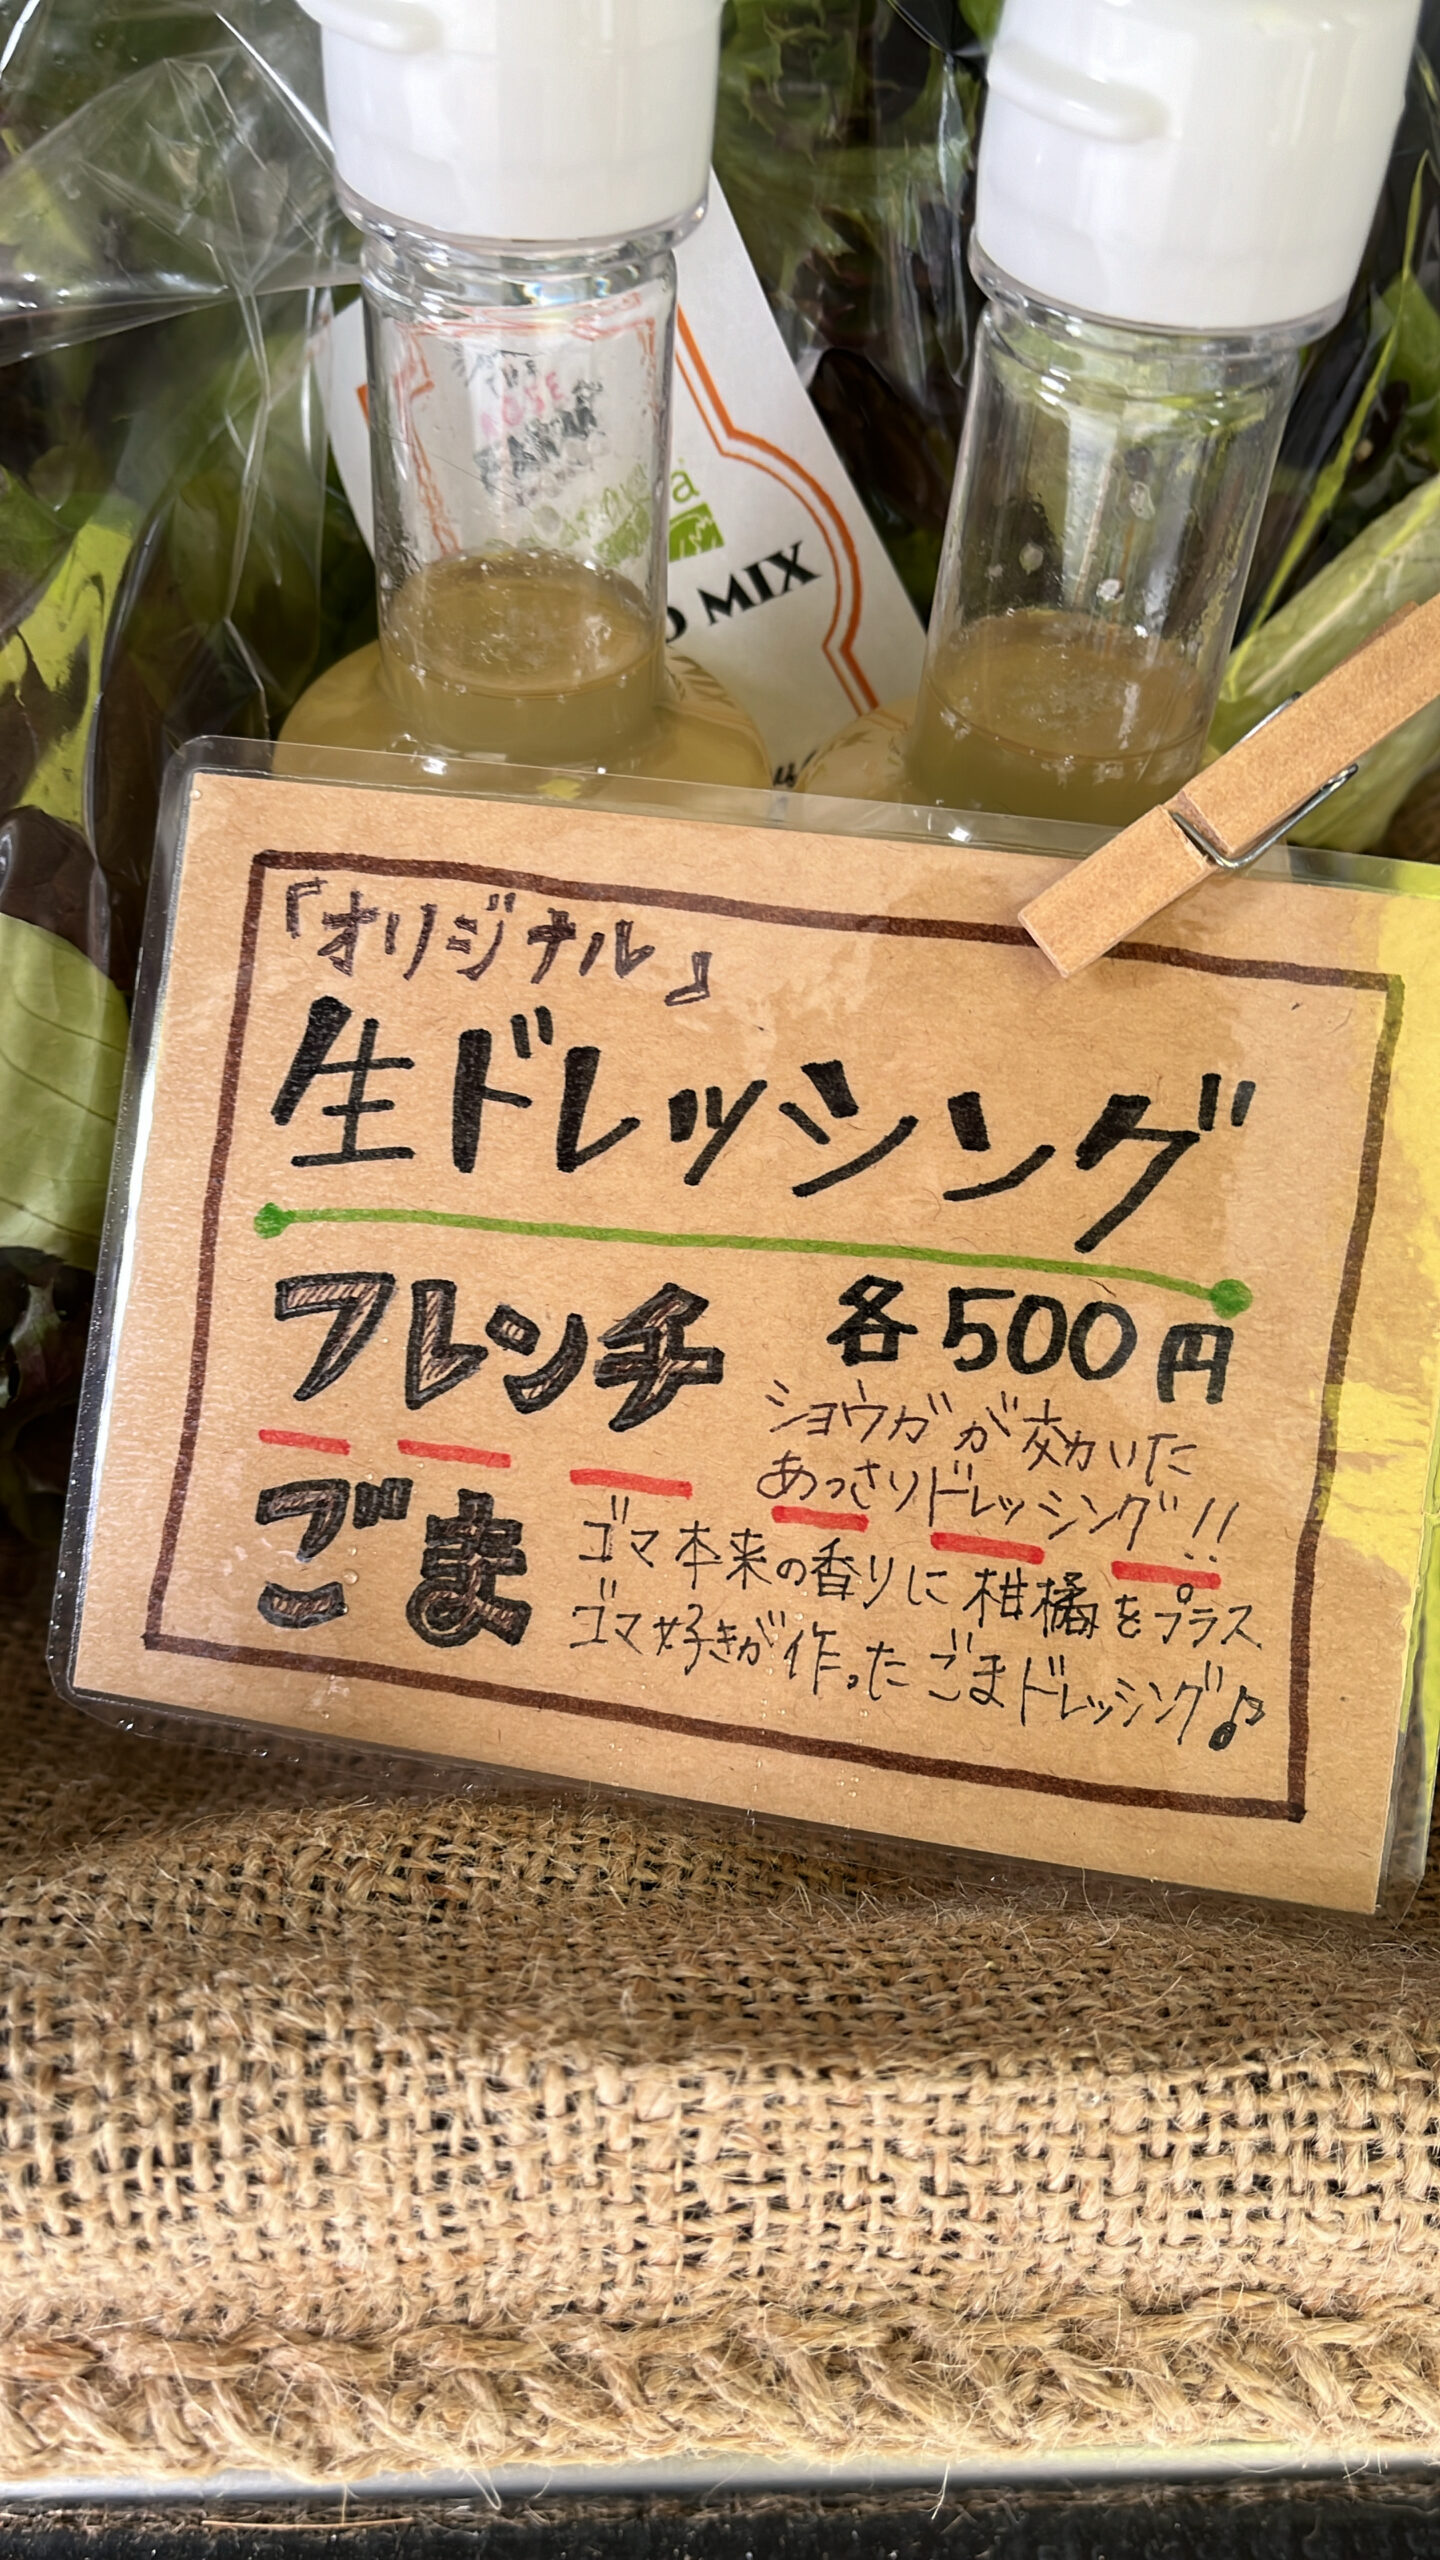 MIX
『オリジナル』
生ドレッシング
フレンチ 各500円
ショウガが効いた
あっさりドレッシング!!
ごま ゴマ本来の香りに柑橘をプラス
ゴマ好きが作ったごまドレッシング♪